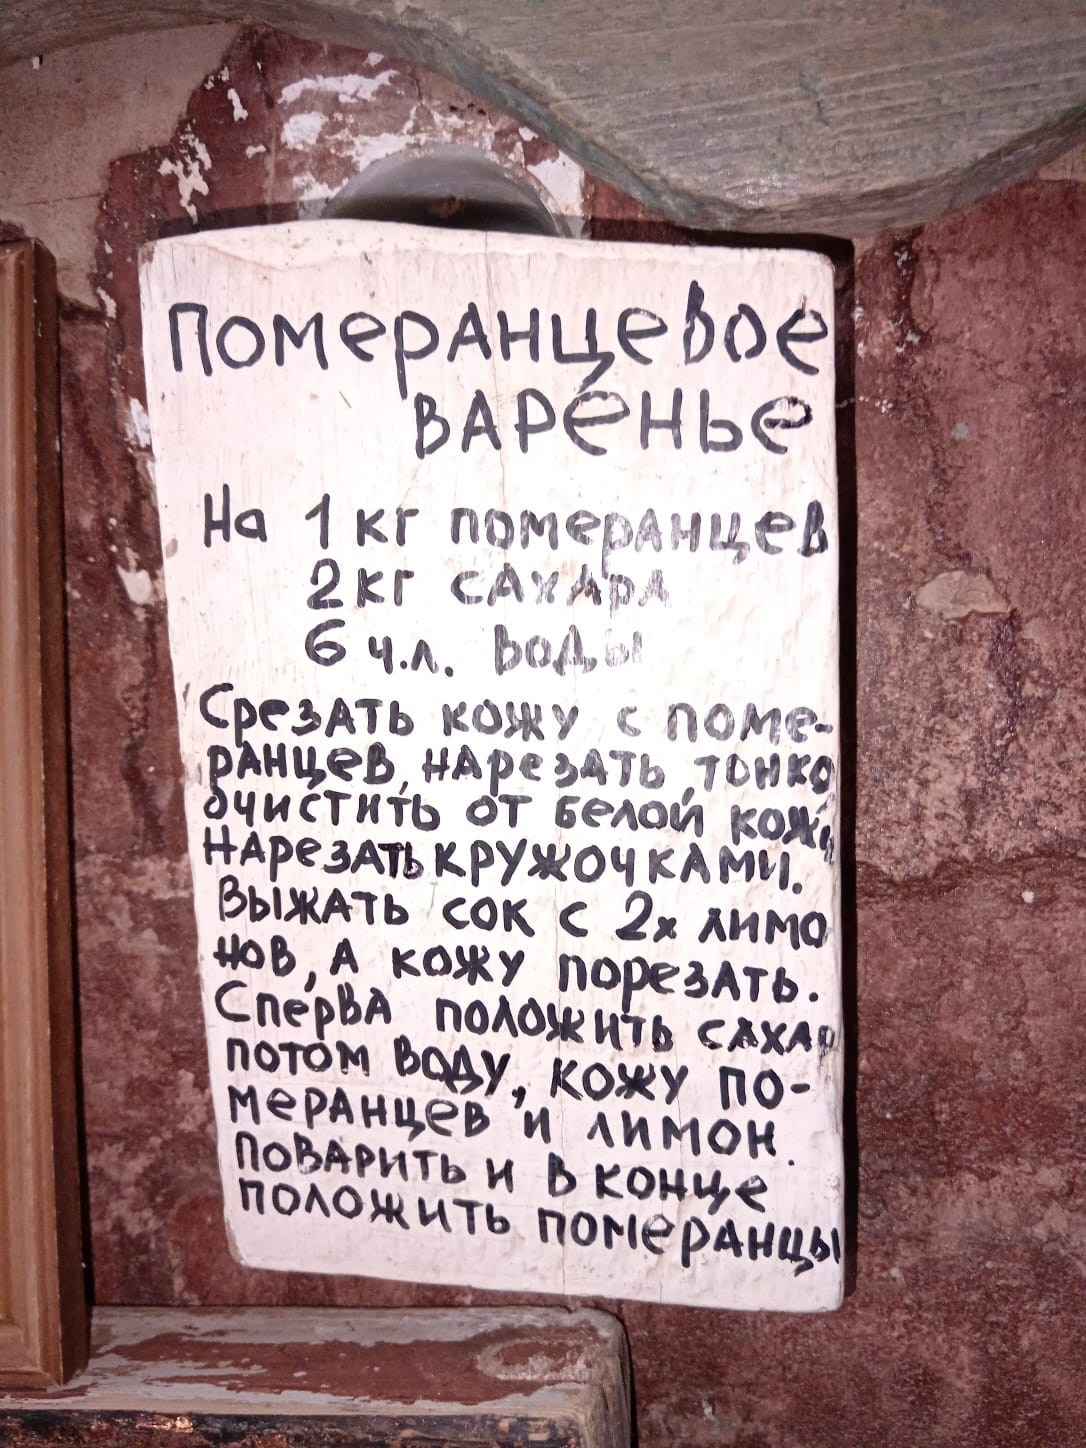 Померанцевое
варенье
На 1 кг померанцев
2 кг сахара
6 ч.л. воды
Срезать кожу с поме-
ранцев, нарезать тонко
очистить от белой кожи
Нарезать кружочками.
Выжать сок с 2х лимо
нов, а кожу порезать.
Сперва положить сахар
потом воду, кожу по-
меранцев и лимон.
Поварить и в конце
положить померанцы